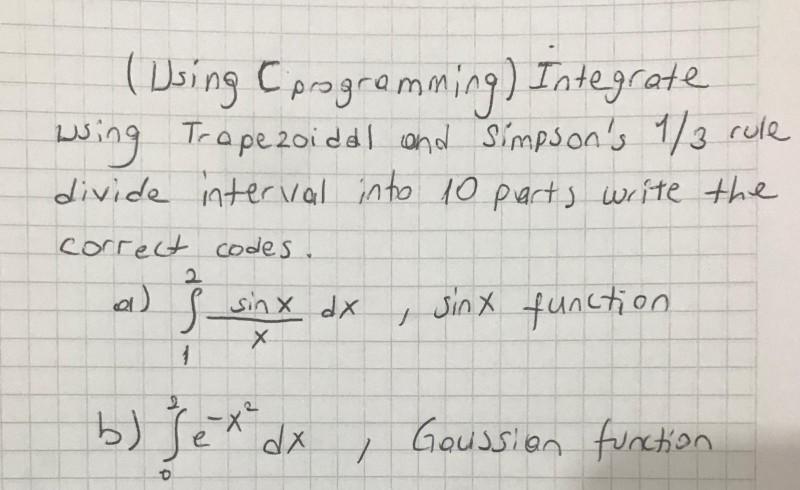 (Using C programming) Integrate
using Trapezoidal and Simpson's 1/3 rule
divide interval into 10 parts write the
correct codes.
a) ∫₁² sinx/x dx , sinx function
b) ∫₀² e^-x² dx , Gaussian function